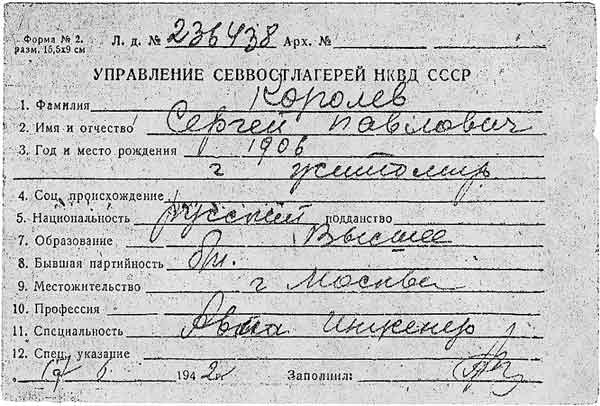 Форма № 2.
разм. 15,5x9 см
Л. д. № 236438 Арх. №
УПРАВЛЕНИЕ СЕВВОСТЛАГЕРЕЙ НКВД СССР
1. Фамилия Королев
2. Имя и отчество Сергей Павлович
3. Год и место рождения 1906
г Житомир
4. Соц. происхождение
5. Национальность русский подданство
7. Образование Высшее
8. Бывшая партийность бп.
9. Местожительство г Москва
10. Профессия
11. Специальность Авиа Инженер
12. Спец. указание
1942 Заполнил: